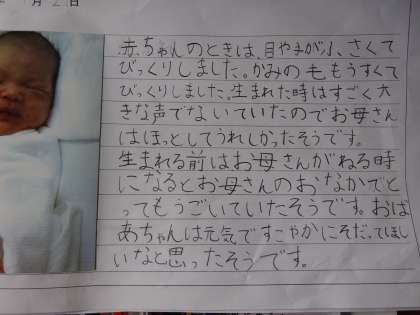 月2日
赤ちゃんのときは、目やまが小、さくて
びっくりしました。かみの毛もうすくて
びっくりしました。生まれた時はすごく大
きな声でないていたのでお母さん
はほっとしてうれしかったそうです。
生まれる前はお母さんがねる時
になるとお母さんのおなかでと
ってもうごいていたそうです。おば
あちゃんは元気ですこやかにそだってほし
いなと思ったそうです。